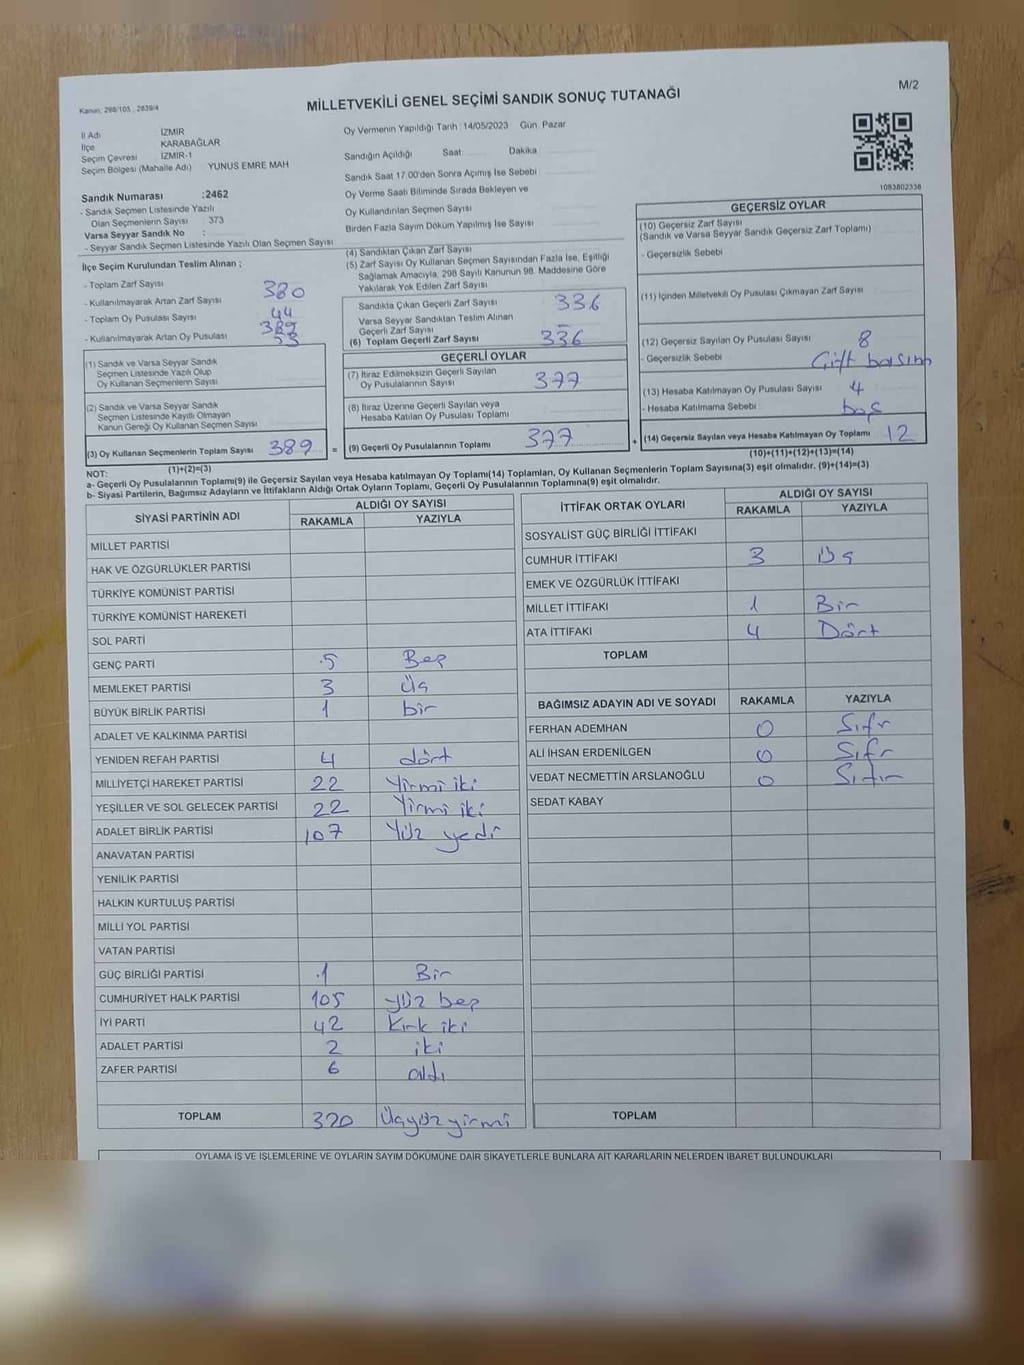 Kanun: 298/103 , 2839/4
MİLLETVEKİLİ GENEL SEÇİMİ SANDIK SONUÇ TUTANAĞI
M/2
İl Adı İZMİR
İlçe KARABAĞLAR
Seçim Çevresi İZMİR-1
Seçim Bölgesi (Mahalle Adı) YUNUS EMRE MAH
Sandık Numarası :2462
- Sandık Seçmen Listesinde Yazılı
Olan Seçmenlerin Sayısı : 373
Varsa Seyyar Sandık No :
- Seyyar Sandık Seçmen Listesinde Yazılı Olan Seçmen Sayısı
Oy Vermenin Yapıldığı Tarih : 14/05/2023 Gün: Pazar
Sandığın Açıldığı Saat: Dakika
Sandık Saat 17.00'den Sonra Açılmış İse Sebebi
Oy Verme Saati Bitiminde Sırada Bekleyen ve
Oy Kullandırılan Seçmen Sayısı
Birden Fazla Sayım Döküm Yapılmış İse Sayısı
1083802338
İlçe Seçim Kurulundan Teslim Alınan ;
- Toplam Zarf Sayısı 380
- Kullanılmayarak Artan Zarf Sayısı 44
- Toplam Oy Pusulası Sayısı 389
- Kullanılmayarak Artan Oy Pusulası 53
(1) Sandık ve Varsa Seyyar Sandık
Seçmen Listesinde Yazılı Olup
Oy Kullanan Seçmenlerin Sayısı
(2) Sandık ve Varsa Seyyar Sandık
Seçmen Listesinde Kayıtlı Olmayan
Kanun Gereği Oy Kullanan Seçmen Sayısı
(3) Oy Kullanan Seçmenlerin Toplam Sayısı 389 =
(1)+(2)=(3)
(4) Sandıktan Çıkan Zarf Sayısı
(5) Zarf Sayısı Oy Kullanan Seçmen Sayısından Fazla İse, Eşitliği
Sağlamak Amacıyla, 298 Sayılı Kanunun 98. Maddesine Göre
Yakılarak Yok Edilen Zarf Sayısı
Sandıkta Çıkan Geçerli Zarf Sayısı 336
Varsa Seyyar Sandıktan Teslim Alınan
Geçerli Zarf Sayısı
(6) Toplam Geçerli Zarf Sayısı 336
GEÇERLİ OYLAR
(7) İtiraz Edilmeksizin Geçerli Sayılan
Oy Pusulalarının Sayısı 377
(8) İtiraz Üzerine Geçerli Sayılan veya
Hesaba Katılan Oy Pusulası Toplamı
(9) Geçerli Oy Pusulalarının Toplamı 377 +
GEÇERSİZ OYLAR
(10) Geçersiz Zarf Sayısı
(Sandık ve Varsa Seyyar Sandık Geçersiz Zarf Toplamı)
- Geçersizlik Sebebi
(11) İçinden Milletvekili Oy Pusulası Çıkmayan Zarf Sayısı
(12) Geçersiz Sayılan Oy Pusulası Sayısı 8
- Geçersizlik Sebebi Çift basım
(13) Hesaba Katılmayan Oy Pusulası Sayısı 4
- Hesaba Katılmama Sebebi boş
(14) Geçersiz Sayılan veya Hesaba Katılmayan Oy Toplamı 12
(10)+(11)+(12)+(13)=(14)
NOT:
a- Geçerli Oy Pusulalarının Toplamı(9) ile Geçersiz Sayılan veya Hesaba katılmayan Oy Toplamı(14) Toplamları, Oy Kullanan Seçmenlerin Toplam Sayısına(3) eşit olmalıdır. (9)+(14)=(3)
b- Siyasi Partilerin, Bağımsız Adayların ve İttifakların Aldığı Ortak Oyların Toplamı, Geçerli Oy Pusulalarının Toplamına(9) eşit olmalıdır.
SİYASİ PARTİNİN ADI ALDIĞI OY SAYISI
RAKAMLA YAZIYLA
MİLLET PARTİSİ
HAK VE ÖZGÜRLÜKLER PARTİSİ
TÜRKİYE KOMÜNİST PARTİSİ
TÜRKİYE KOMÜNİST HAREKETİ
SOL PARTİ
GENÇ PARTİ 5 Beş
MEMLEKET PARTİSİ 3 Üç
BÜYÜK BİRLİK PARTİSİ 1 bir
ADALET VE KALKINMA PARTİSİ
YENİDEN REFAH PARTİSİ 4 dört
MİLLİYETÇİ HAREKET PARTİSİ 22 Yirmi iki
YEŞİLLER VE SOL GELECEK PARTİSİ 22 Yirmi iki
ADALET BİRLİK PARTİSİ 107 Yüz yedi
ANAVATAN PARTİSİ
YENİLİK PARTİSİ
HALKIN KURTULUŞ PARTİSİ
MİLLİ YOL PARTİSİ
VATAN PARTİSİ
GÜÇ BİRLİĞİ PARTİSİ 1 Bir
CUMHURİYET HALK PARTİSİ 105 Yüz beş
İYİ PARTİ 42 Kırk iki
ADALET PARTİSİ 2 iki
ZAFER PARTİSİ 6 altı
TOPLAM 320 Üçyüz yirmi
İTTİFAK ORTAK OYLARI ALDIĞI OY SAYISI
RAKAMLA YAZIYLA
SOSYALİST GÜÇ BİRLİĞİ İTTİFAKI
CUMHUR İTTİFAKI 3 Üç
EMEK VE ÖZGÜRLÜK İTTİFAKI
MİLLET İTTİFAKI 1 Bir
ATA İTTİFAKI 4 Dört
TOPLAM
BAĞIMSIZ ADAYIN ADI VE SOYADI RAKAMLA YAZIYLA
FERHAN ADEMHAN 0 Sıfr
ALİ İHSAN ERDENİLGEN 0 Sıfr
VEDAT NECMETTİN ARSLANOĞLU 0 Sıfır
SEDAT KABAY
TOPLAM
OYLAMA İŞ VE İŞLEMLERİNE VE OYLARIN SAYIM DÖKÜMÜNE DAİR ŞİKAYETLERLE BUNLARA AİT KARARLARIN NELERDEN İBARET BULUNDUKLARI